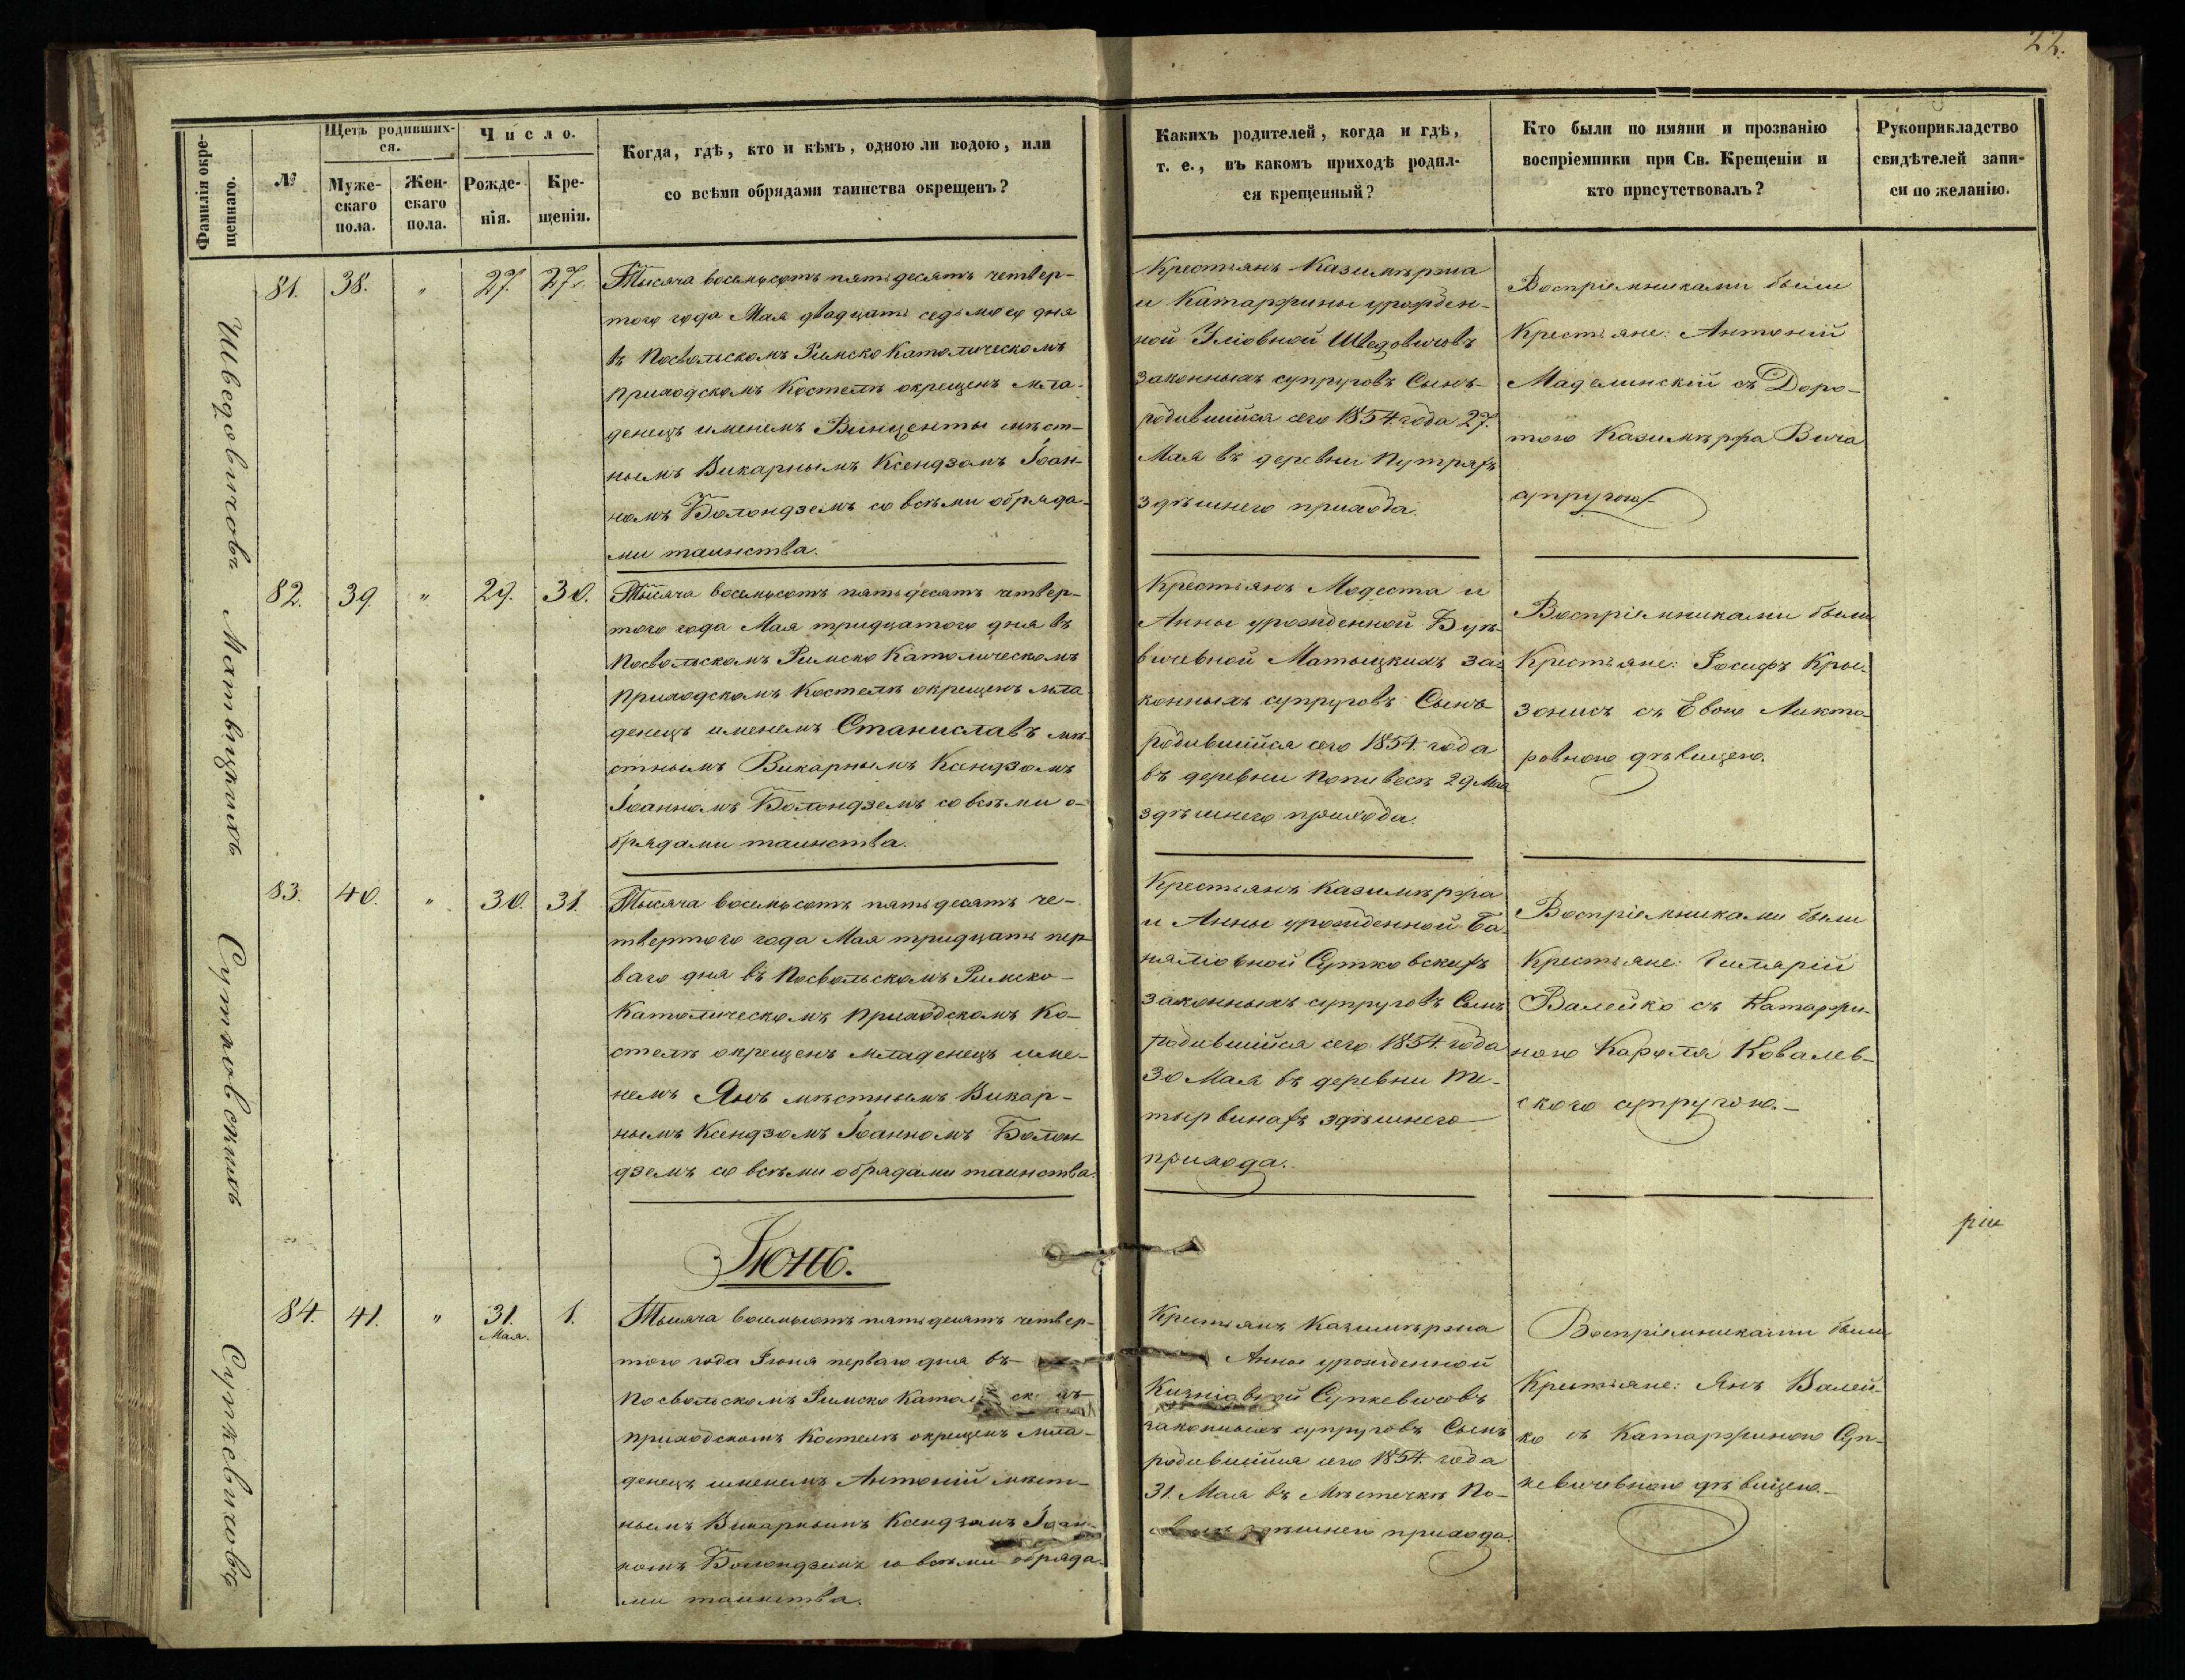 22.
Фамилія окре-
щеннаго.
№
Щетъ родивших-
ся.
Муже-
скаго
пола.
Жен-
скаго
пола.
Число.
Рожде-
нія.
Кре-
щенія.
Когда, гдѣ, кто и кѣмъ, одною ли водою, или
со всѣми обрядами таинства окрещенъ?
Какихъ родителей, когда и гдѣ,
т. е., въ какомъ приходѣ родил-
ся крещенный?
Кто были по имяни и прозванію
воспріемники при Св. Крещеніи и
кто присутствовалъ?
Рукоприкладство
свидѣтелей запи-
си по желанію.
Шведовичовъ
81. 38. " 27. 27.
Тысяча восемьсотъ пятьдесятъ четвер-
того года Мая двадцать седьмого дня
въ Посвольскомъ Римско Католическомъ
приходскомъ Костелѣ окрещенъ мла-
денецъ именемъ Винценты мѣст-
нымъ Викарнымъ Ксендзомъ Іоан-
номъ Болондземъ со всѣми обряда-
ми таинства.
Крестьянъ Казимѣржа
и Катаржины урожден-
ной Шведовичовъ
законныхъ супруговъ Сынъ
родившійся сего 1854. года 27.
Мая въ деревни
здѣшнего прихода.
Воспріемниками были
Крестьяне: Антоній
съ Доро-
тою Казимѣржа Вича
супругою
Матвицкихъ
82. 39. " 29. 30.
Тысяча восемьсотъ пятьдесятъ четвер-
того года Мая тридцатого дня въ
Посвольскомъ Римско Католическомъ
Приходскомъ Костелѣ окрещенъ мла-
денецъ именемъ Станиславъ мѣ-
стнымъ Викарнымъ Ксендзомъ
Іоанномъ Болондземъ со всѣми о-
брядами таинства.
Крестьянъ Модеста и
Анны урожденной
за-
конныхъ супруговъ Сынъ
родившійся сего 1854. года
въ деревни 29 Мая
здѣшнего прихода.
Воспріемниками были
Крестьяне: Іосифъ Кры-
съ Евою Аикто-
ровною дѣвицею.
Сутковскихъ
83. 40. " 30. 31.
Тысяча восемьсотъ пятьдесятъ че-
твертого года Мая тридцать пер-
ваго дня въ Посвольскомъ Римско-
Католическомъ Приходскомъ Ко-
стелѣ окрещенъ младенецъ име-
немъ Янъ мѣстнымъ Викар-
нымъ Ксендзомъ Іоанномъ Болон-
дземъ со всѣми обрядами таинства.
Крестьянъ Казимѣржа
и Анны урожденной Ба-
Сутковскихъ
законныхъ супруговъ Сынъ
родившійся сего 1854. года
30 Мая въ деревни
здѣшнего
прихода.
Воспріемниками были
Крестьяне:
Валейко съ Катаржи-
ною Кароля Ковалев-
ского супругою.
Іюнь.
Супкевичовъ
84. 41. " 31. 1.
Мая.
Тысяча восемьсотъ пятьдесятъ четвер-
того года Іюня перваго дня въ
Посвольскомъ Римско
приходскомъ Костелѣ окрещенъ мла-
денецъ именемъ Антоній мѣст-
нымъ Викарнымъ Ксендзомъ Іоан-
номъ Болондземъ со всѣми обряда-
ми таинства.
Крестьянъ Казимѣржа
Анны урожденной
Супкевичовъ
законныхъ супруговъ Сынъ
родившійся сего 1854. года
31. Мая въ Мѣстечкѣ По-
здѣшнего прихода.
Воспріемниками были
Крестьяне: Янъ Валей-
ко съ Катаржиною Суп-
кевичевною дѣвицею.